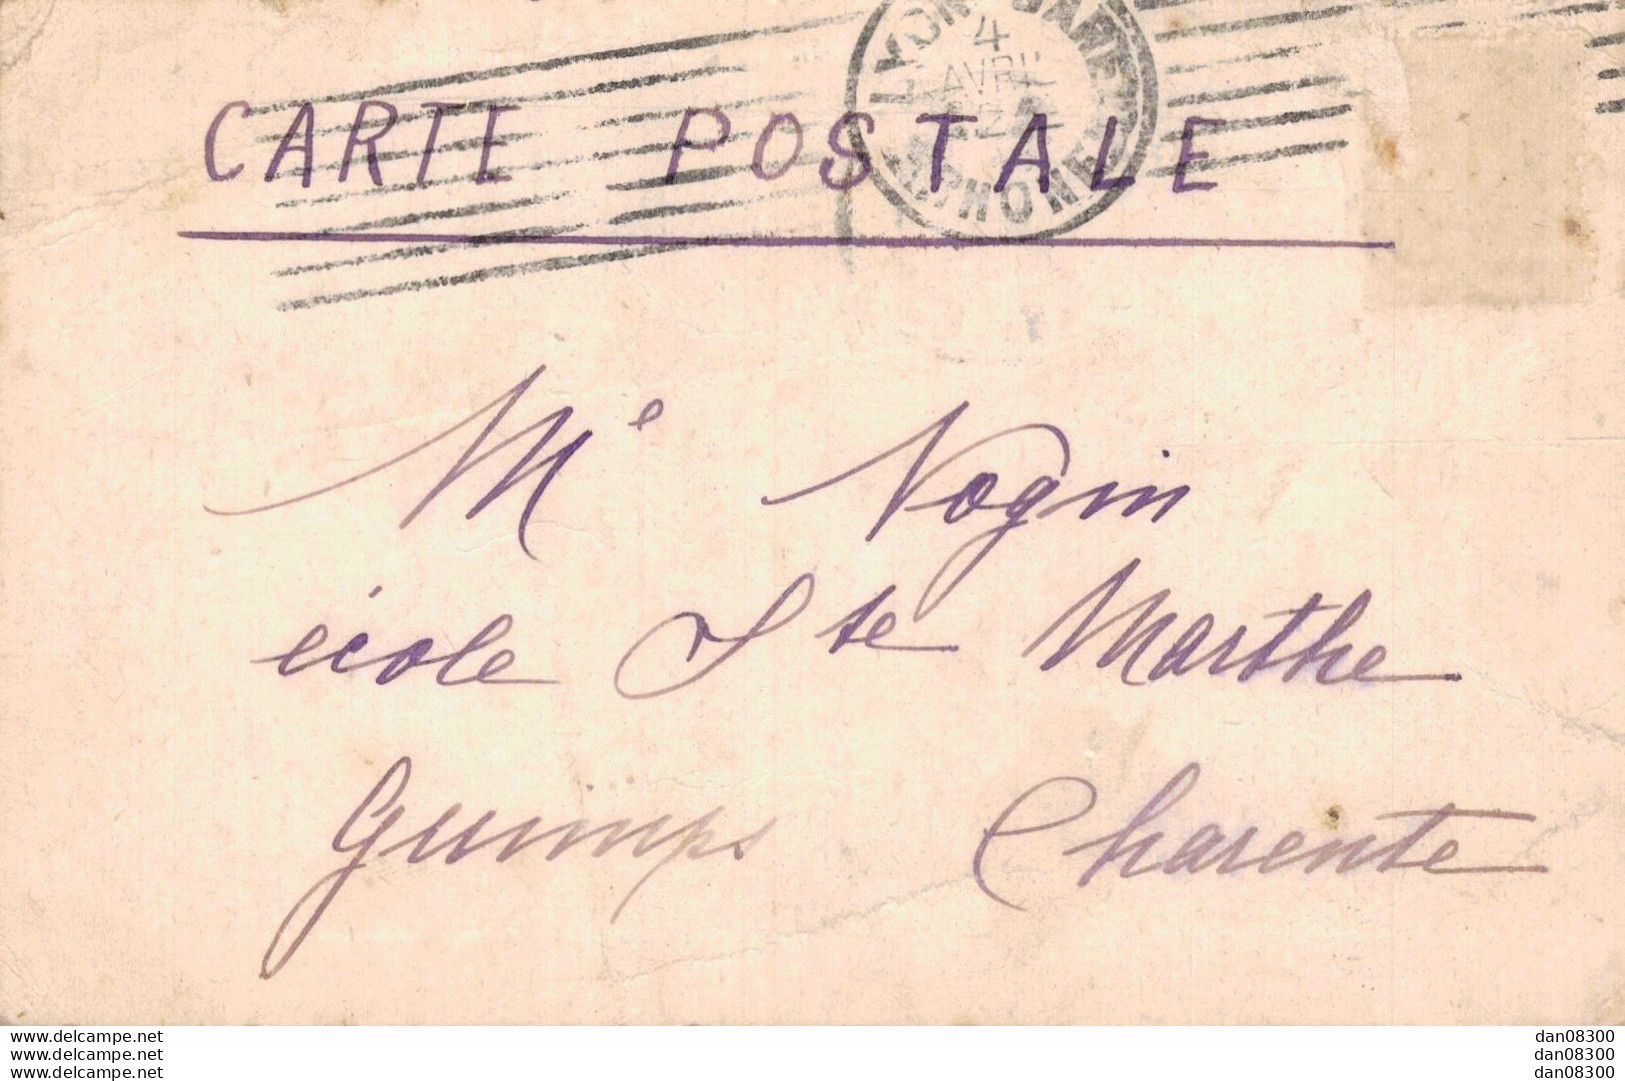 LYON GARE
4
AVRIL
RHONE
CARTE POSTALE
Me Nogin
école Ste Marthe
Guimps Charente
www.delcampe.net dan08300
www.delcampe.net dan08300
www.delcampe.net dan08300